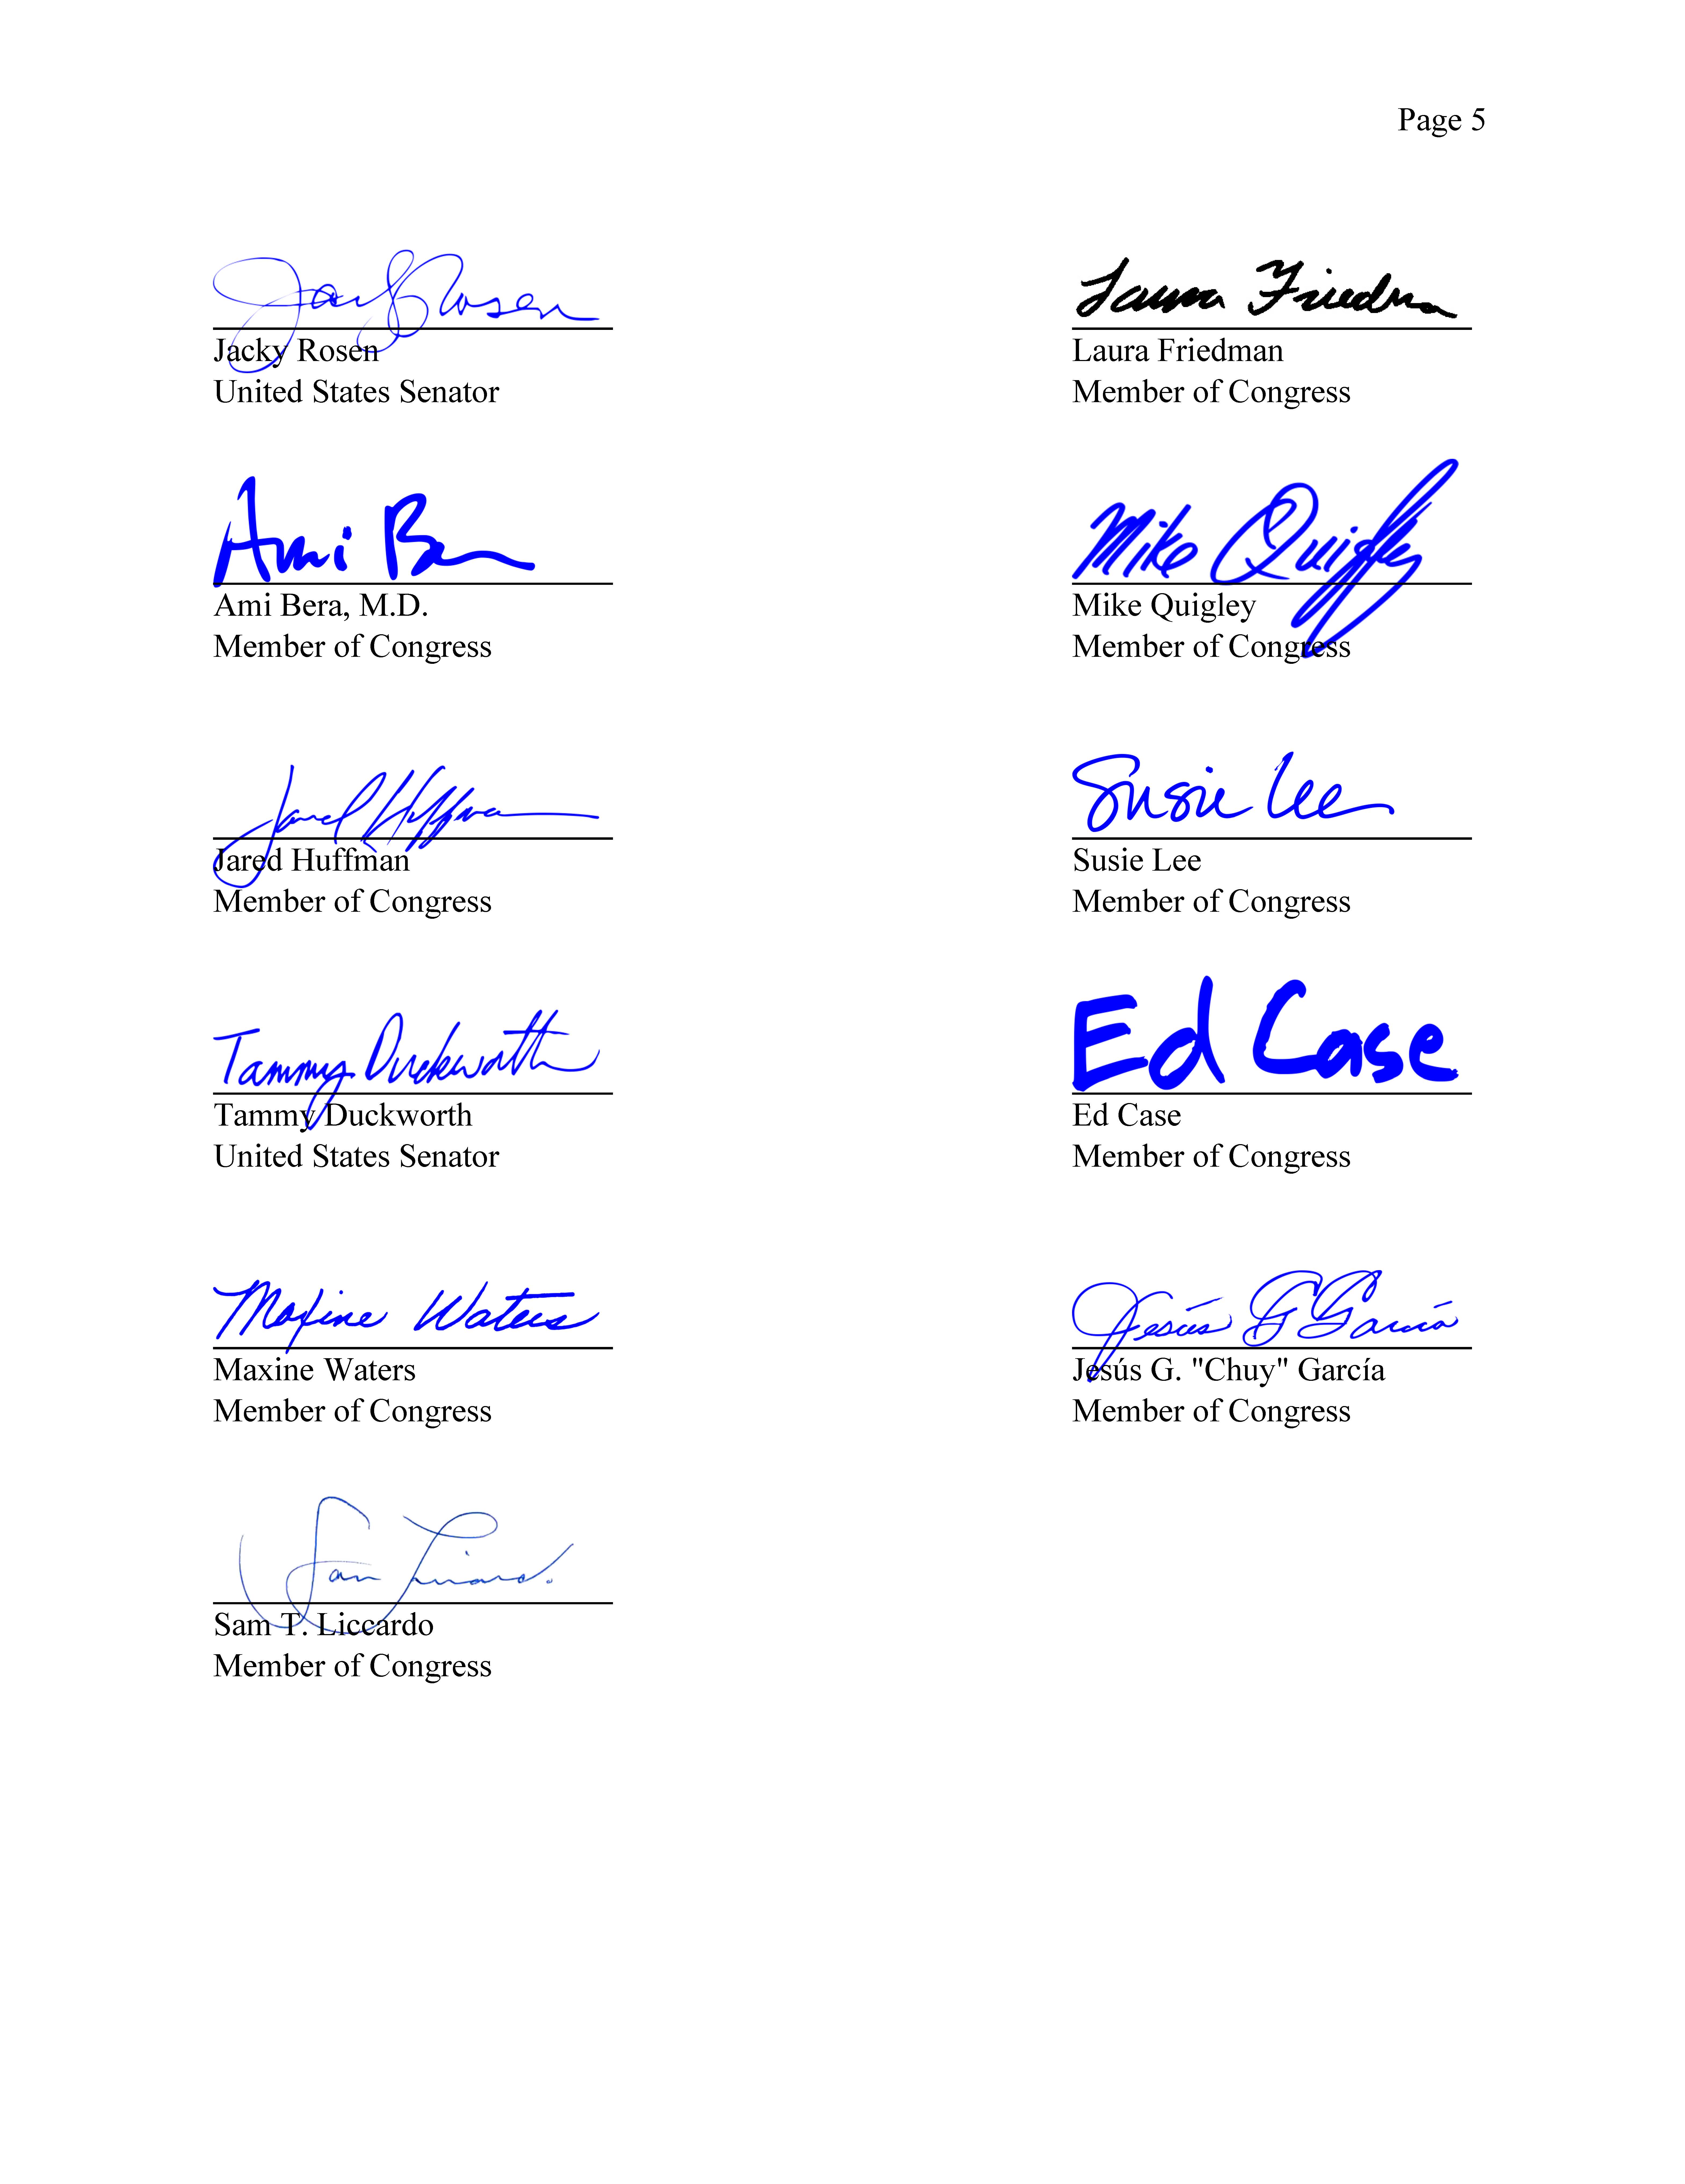 Page 5
Jacky Rosen
Jacky Rosen
United States Senator
Laura Friedman
Laura Friedman
Member of Congress
Ami Bera
Ami Bera, M.D.
Member of Congress
Mike Quigley
Mike Quigley
Member of Congress
Jared Huffman
Jared Huffman
Member of Congress
Susie Lee
Susie Lee
Member of Congress
Tammy Duckworth
Tammy Duckworth
United States Senator
Ed Case
Ed Case
Member of Congress
Maxine Waters
Maxine Waters
Member of Congress
Jesús G García
Jesús G. "Chuy" García
Member of Congress
Sam Liccardo
Sam T. Liccardo
Member of Congress